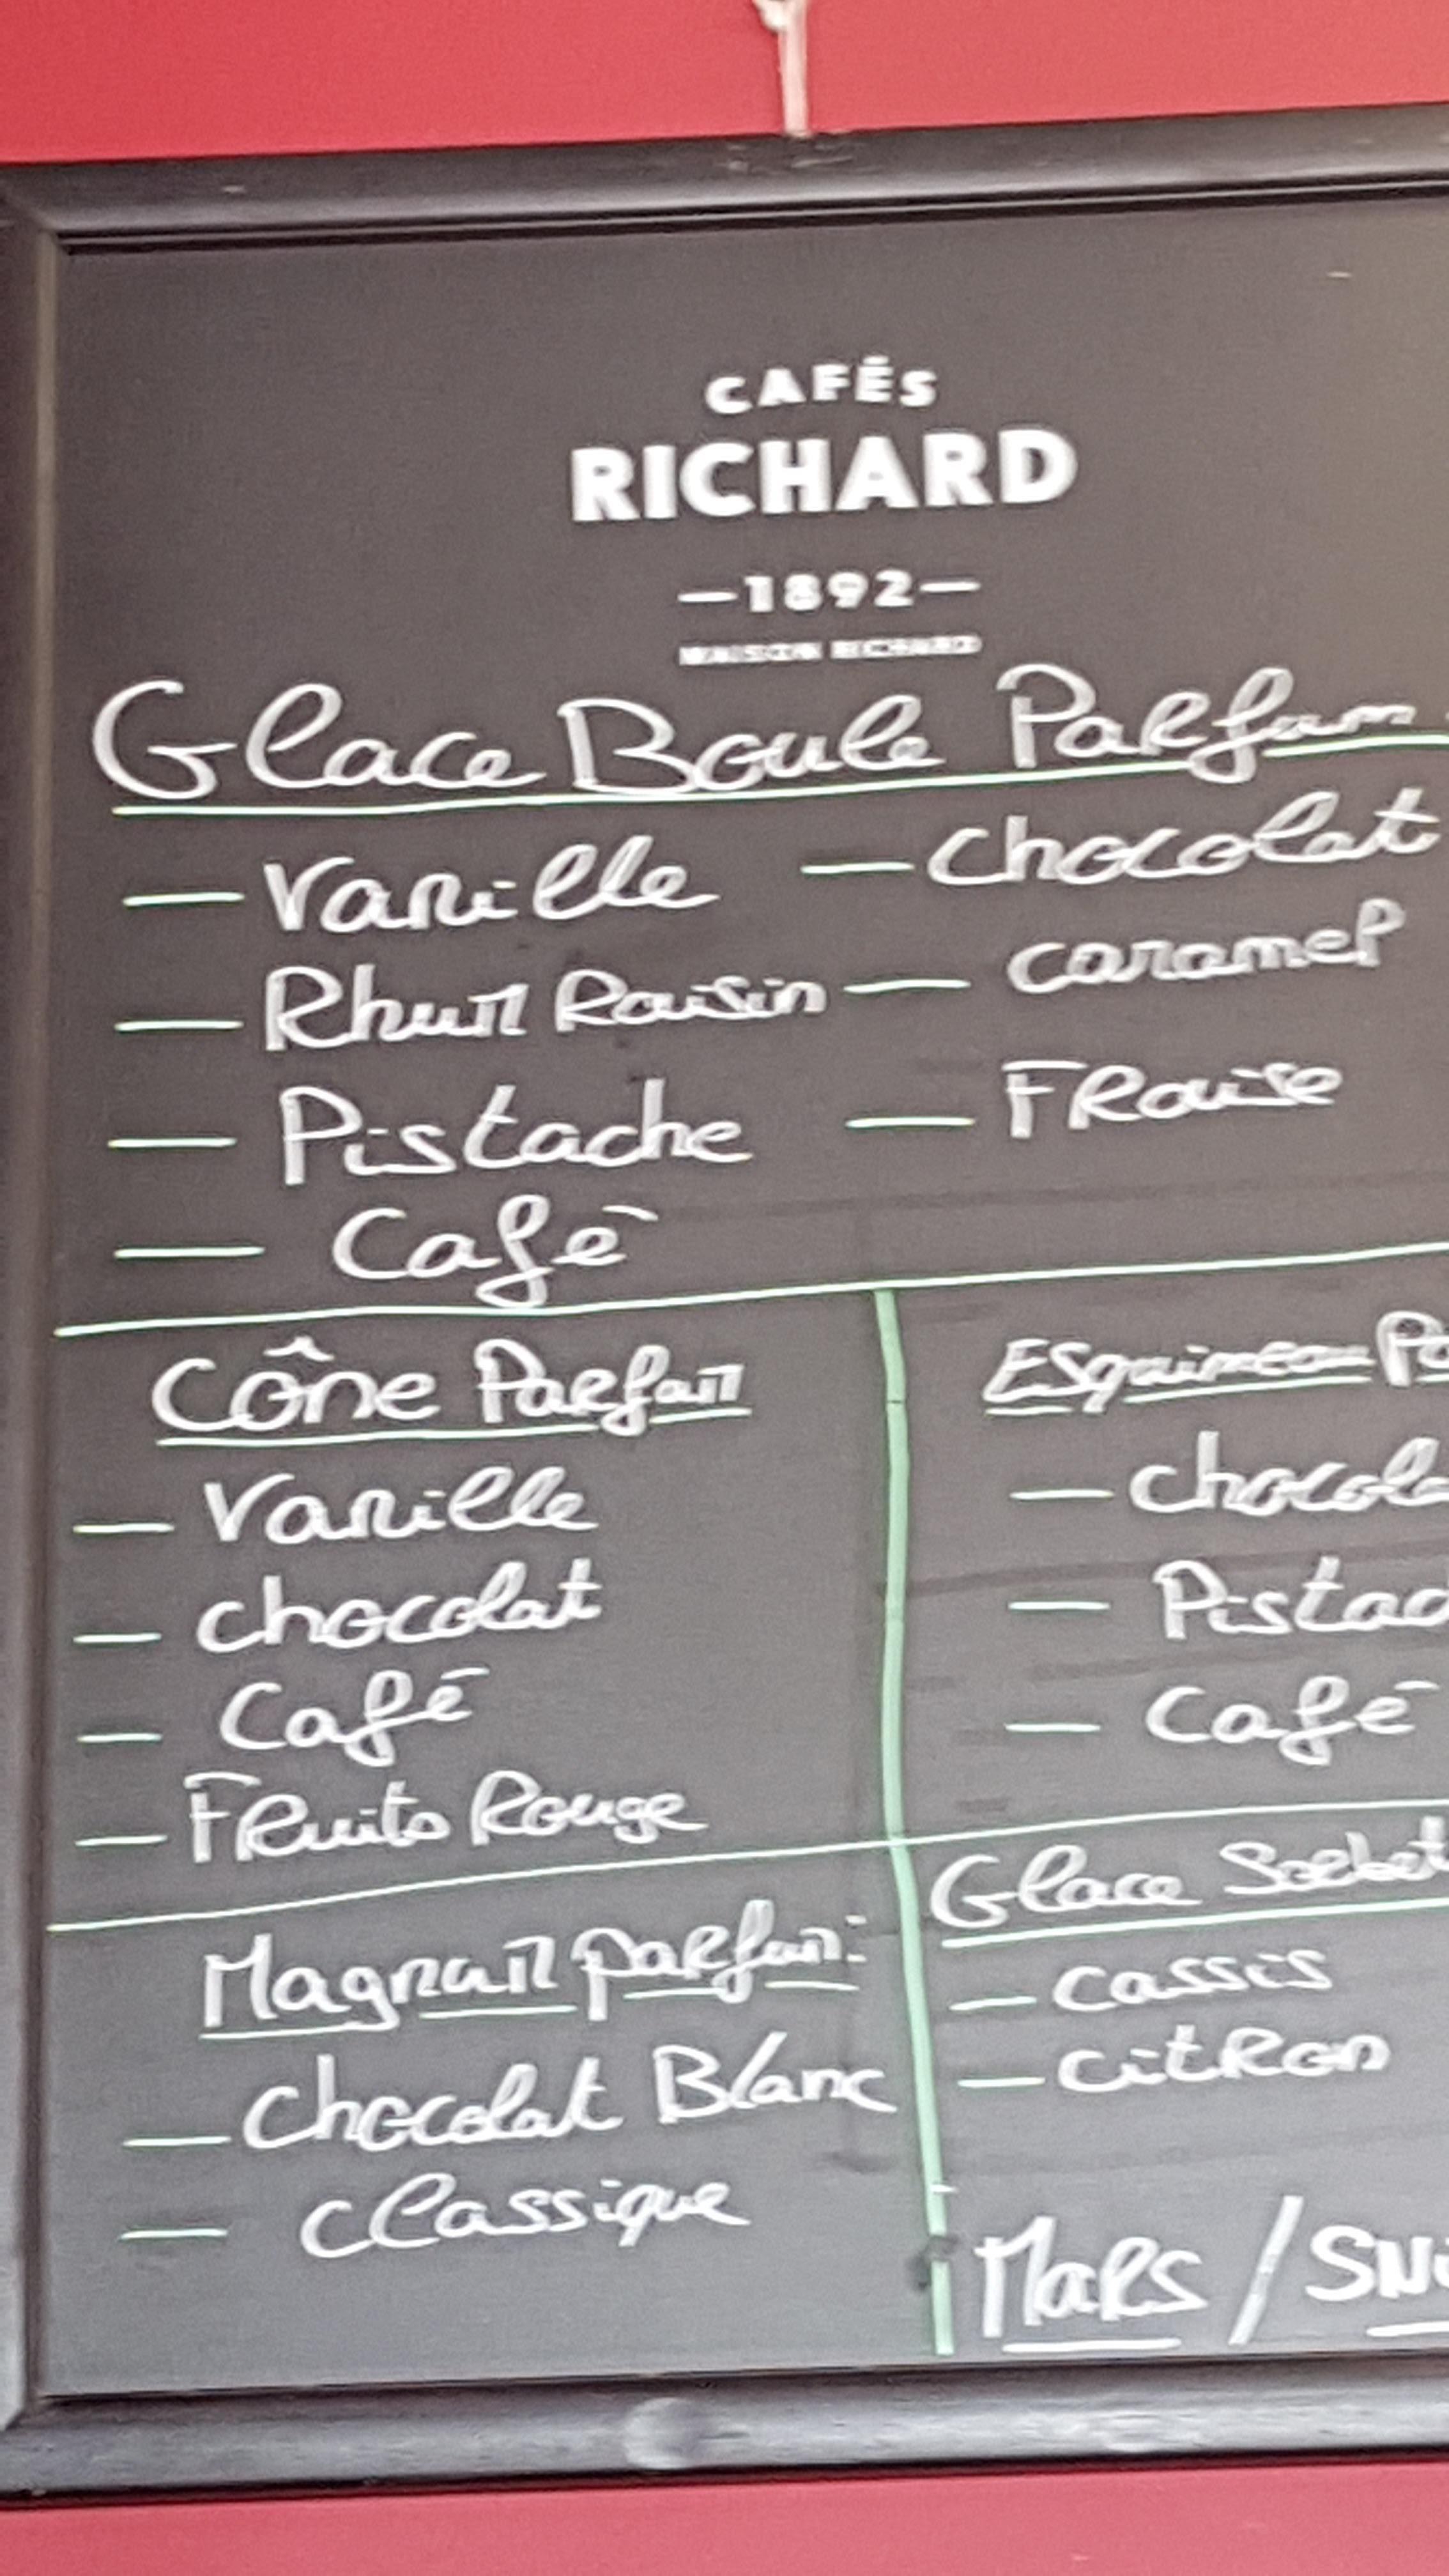 CAFÉS
RICHARD
—1892—
MAISON RICHARD
Glace Boule Parfum
— Vanille — Chocolat
— Rhum Raisin — caramel
— Pistache — FRaise
— Café
Cône Parfum
— Vanille
— chocolat
— Café
— FRuits Rouge
Esquimeau Pa
— chocola
— Pistac
— Café
Magnum parfum:
— chocolat Blanc
— classique
Glace Sorbet
— cassis
— citRon
MaRS / SNi